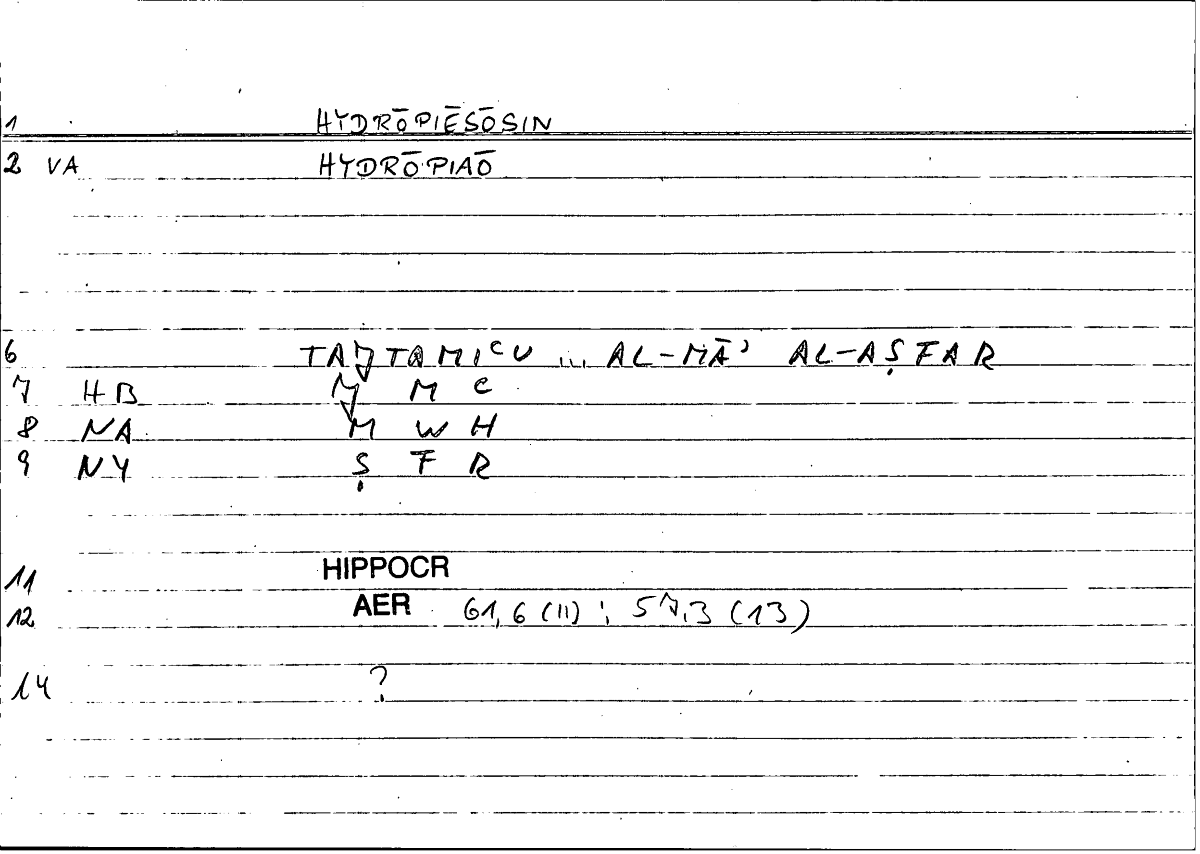 1 HYDRŌPIĒSŌSIN
2 VA HYDRŌPIAŌ
6 TAǦTAMIʿU ... AL-MĀʾ AL-AṢFAR
7 HB Ǧ M ʿ
8 NA M W H
9 NY Ṣ F R
11 HIPPOCR
12 AER 61,6 (11) ; 57,3 (13)
14 ?